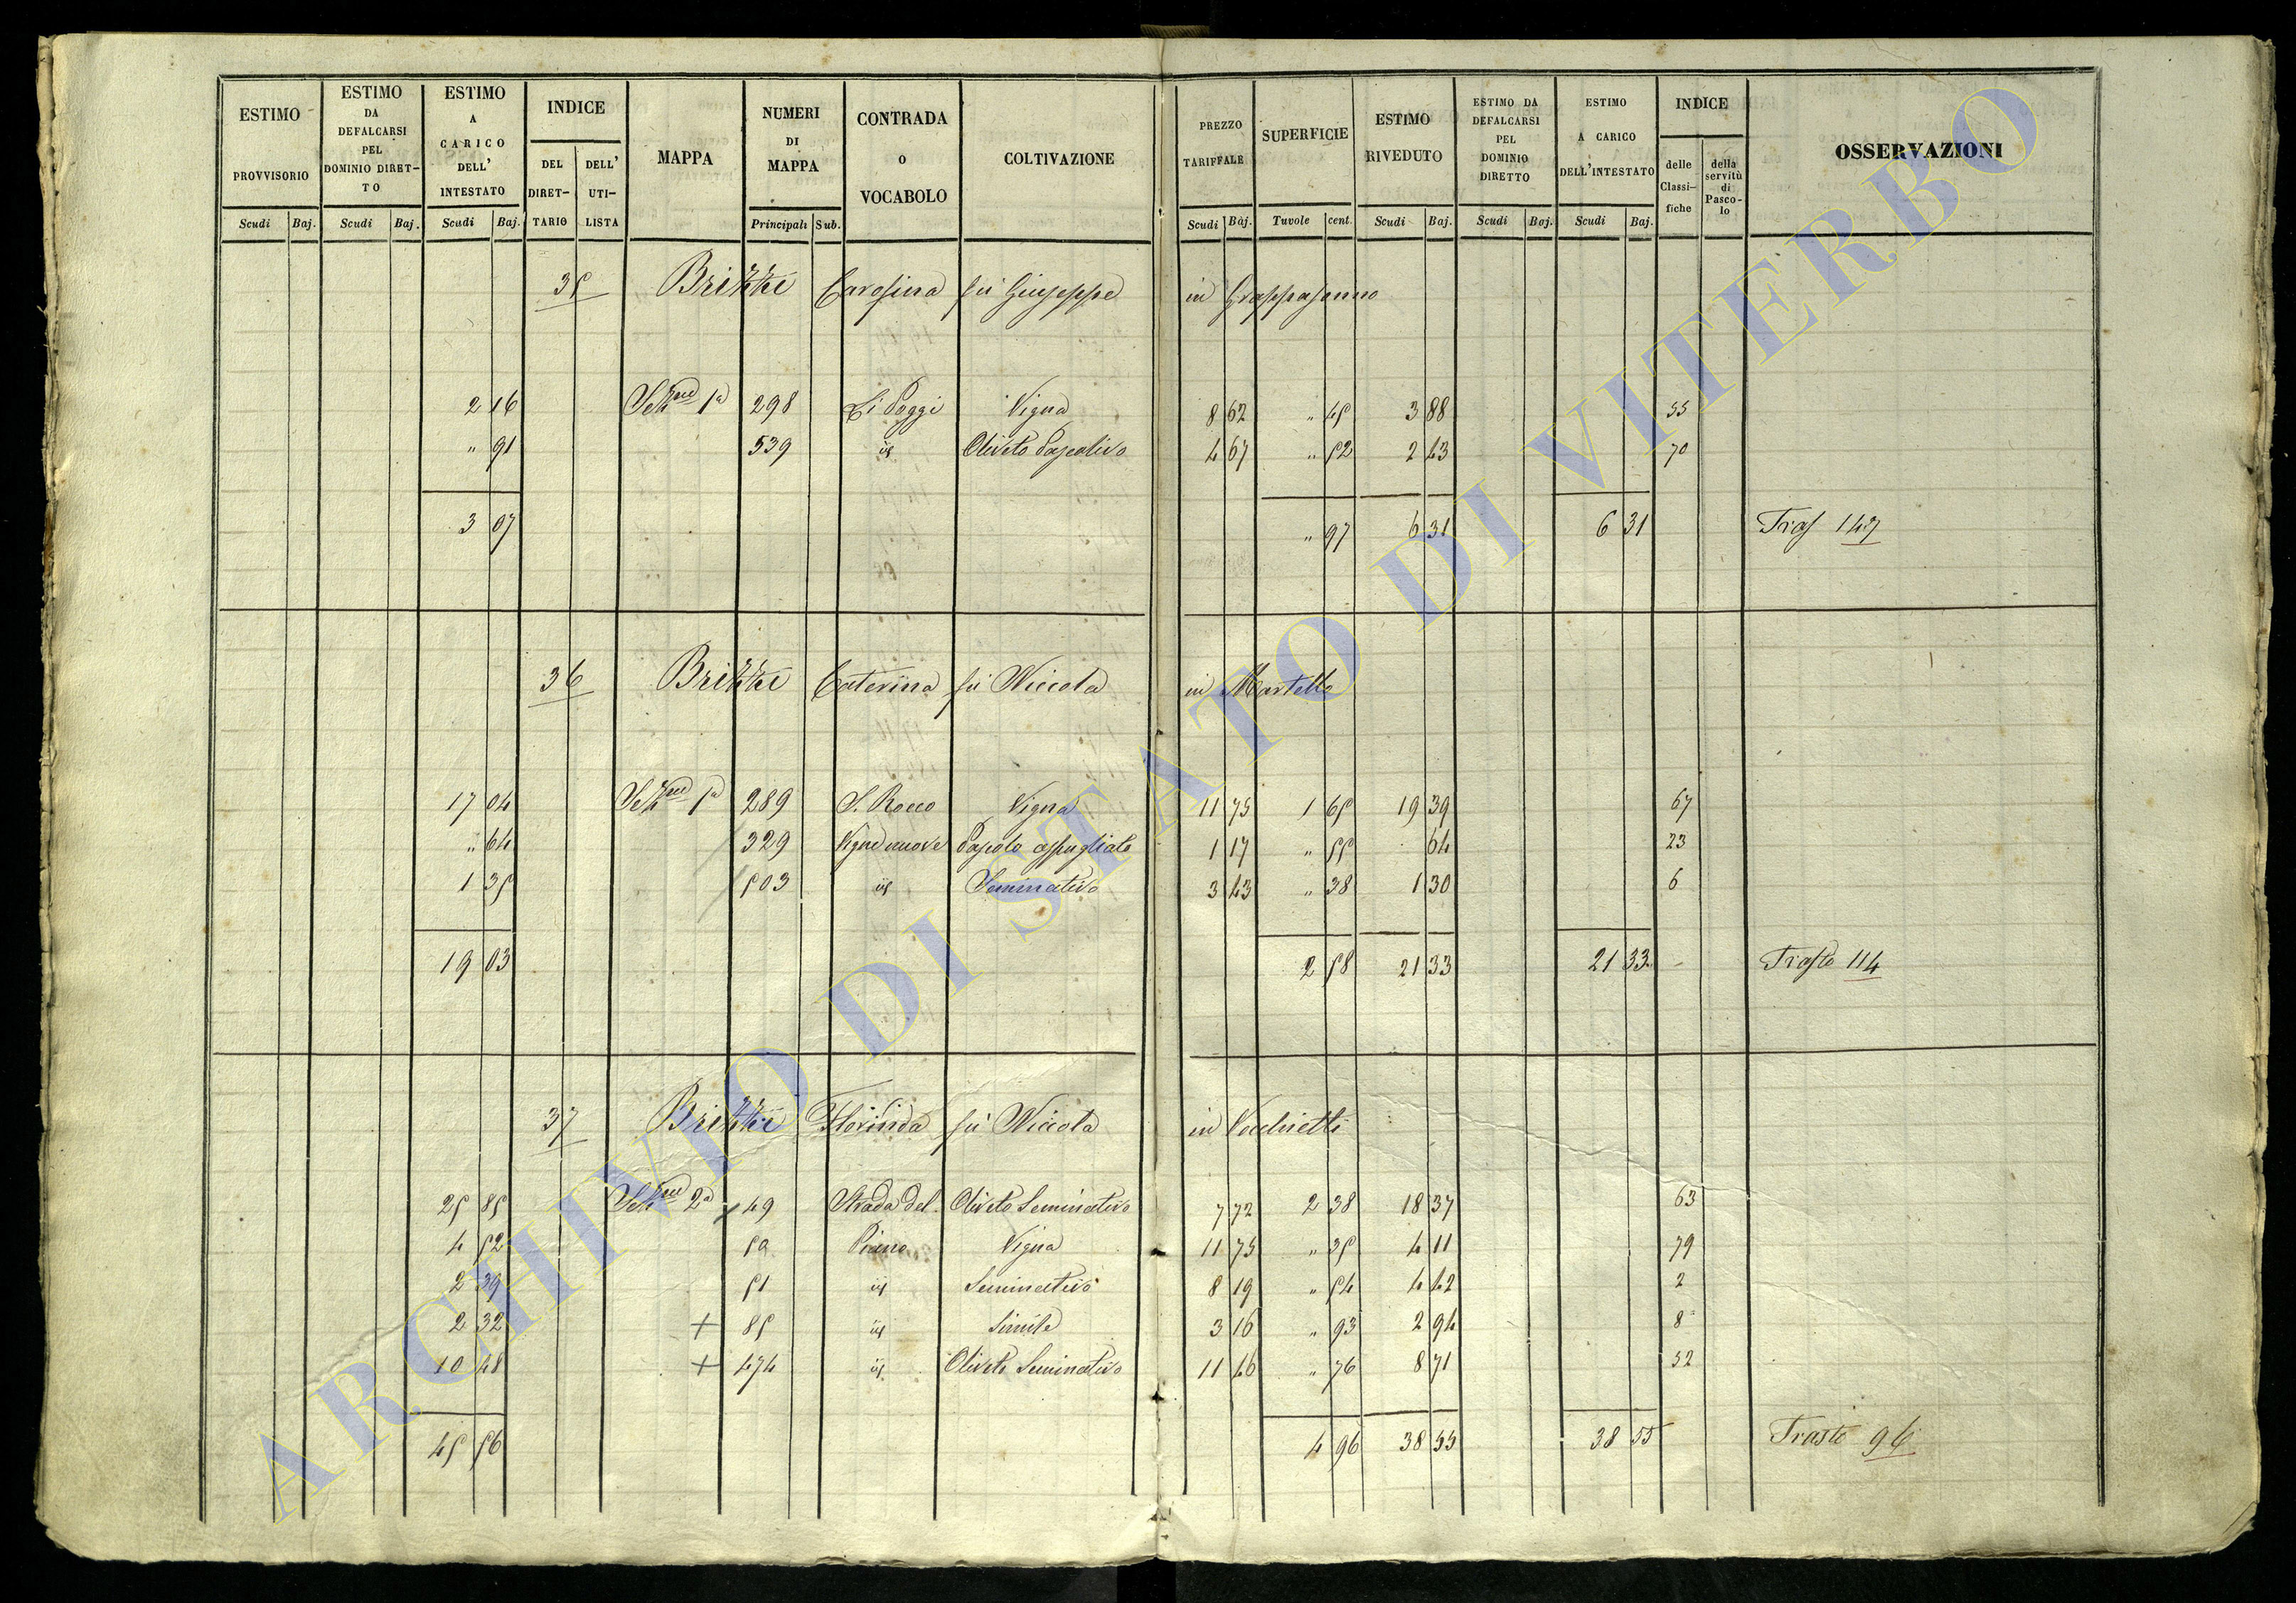 ESTIMO PROVVISORIO | ESTIMO DA DEFALCARSI PEL DOMINIO DIRET-TO | ESTIMO A CARICO DELL' INTESTATO | INDICE DEL DIRET-TARIO | DELL' UTI-LISTA | MAPPA | NUMERI DI MAPPA | CONTRADA O VOCABOLO | COLTIVAZIONE | PREZZO TARIFFALE | SUPERFICIE | ESTIMO RIVEDUTO | ESTIMO DA DEFALCARSI PEL DOMINIO DIRETTO | ESTIMO A CARICO DELL'INTESTATO | INDICE delle Classi-fiche | della servitù di Pasco-lo | OSSERVAZIONI
Scudi Baj. | Scudi Baj. | Scudi Baj. | Principali Sub. | Scudi Baj. | Tavole cent. | Scudi Baj. | Scudi Baj. | Scudi Baj.
35 Brizzi Carosina fu Giuseppe in Grappasonno
2 16 Sezne 1a 298 Li Poggi Vigna 8 62 " 45 3 88 55
" 91 539 id Oliveto Pascolivo 4 67 " 52 2 43 70
3 07 " 97 6 31 6 31 Trasf 147
36 Brizzi Caterina fu Niccola in Martello
17 04 Sezne 1a 289 S. Rocco Vigna 11 75 1 65 19 39 67
" 64 329 Vigne nuove Pascolo cespugliato 1 17 " 55 64 23
1 35 503 id Seminativo 3 43 " 38 1 30 6
19 03 2 58 21 33 21 33 Trasfto 114
37 Brizzi Florinda fu Niccola in Vecchietti
25 85 Sezne 2a 49 Strada del Oliveto Seminativo 7 72 2 38 18 37 63
4 52 50 Piano Vigna 11 75 " 35 4 11 79
2 39 51 id Seminativo 8 19 " 54 4 42 2
2 32 + 85 id Simile 3 16 " 93 2 94 8
10 48 + 474 id Oliveto Seminativo 11 46 " 76 8 71 52
45 56 4 96 38 55 38 55 Trasto 96
ARCHIVIO DI STATO DI VITERBO